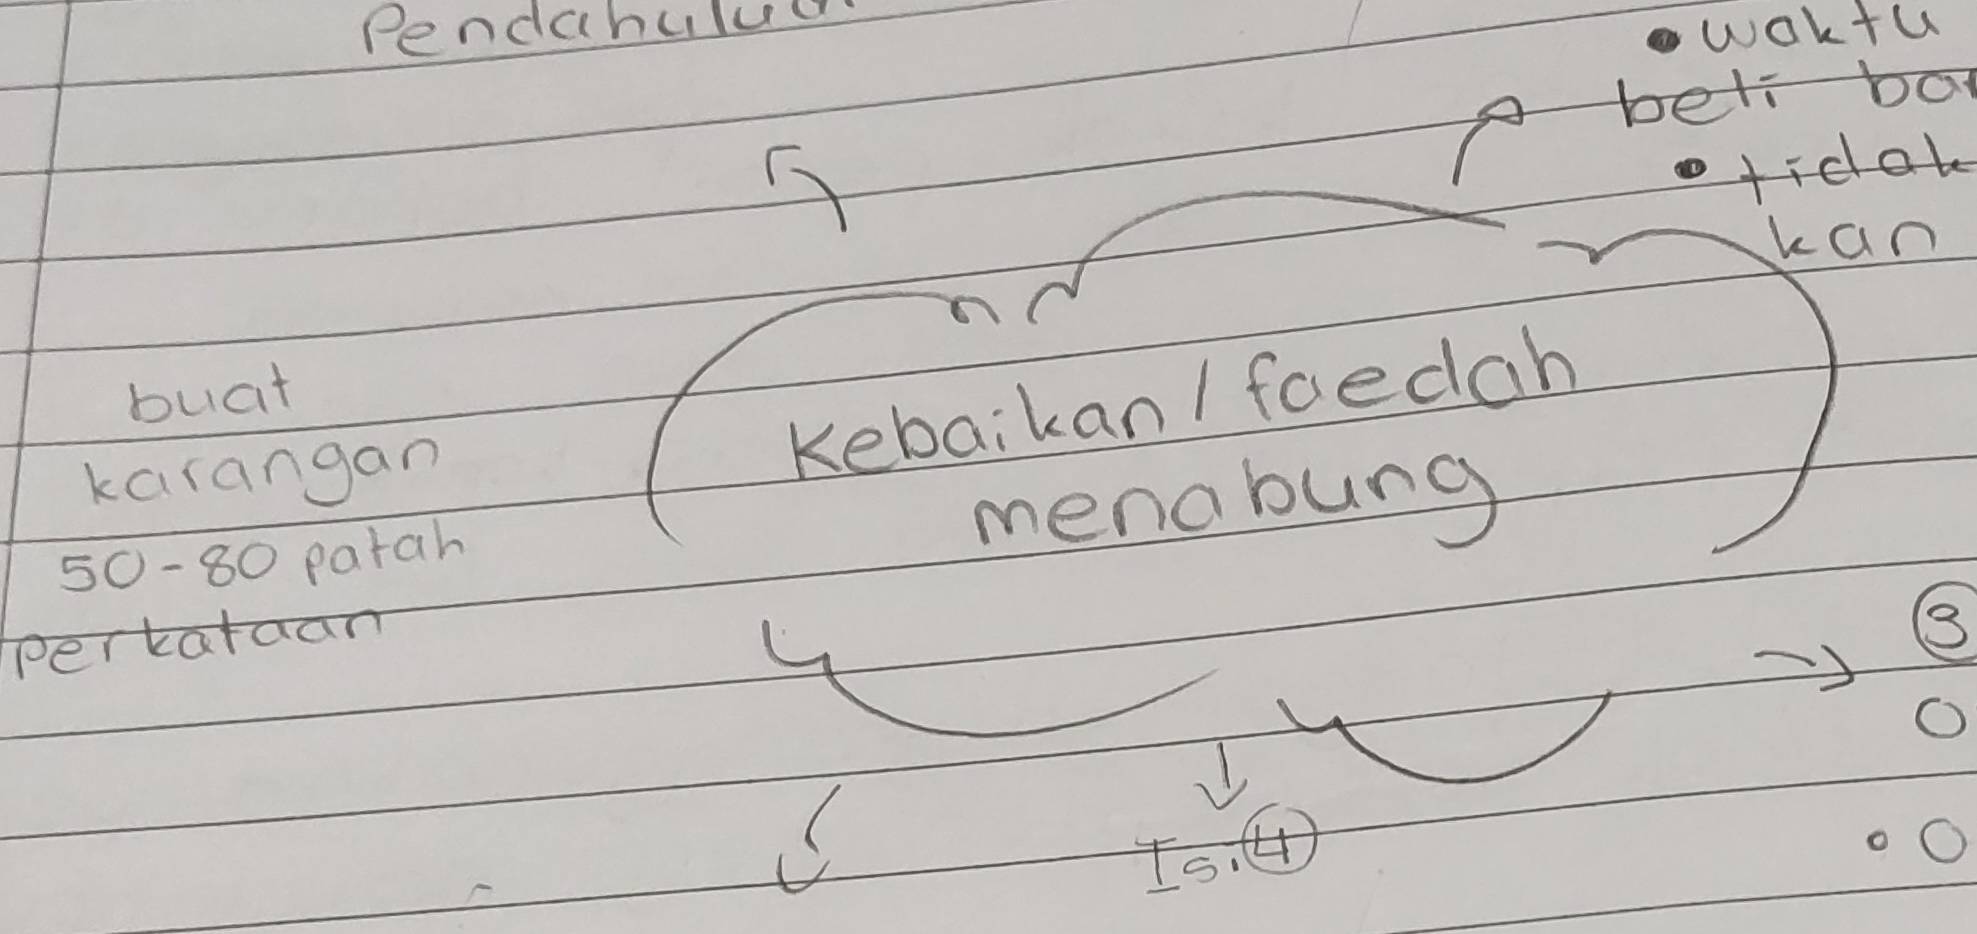 Pendahulua
• waktu
beli
• tidak
kan
Kebaikan / faedah
menabung
buat
karangan
50-80 patah
perkataan
3
Isi 4